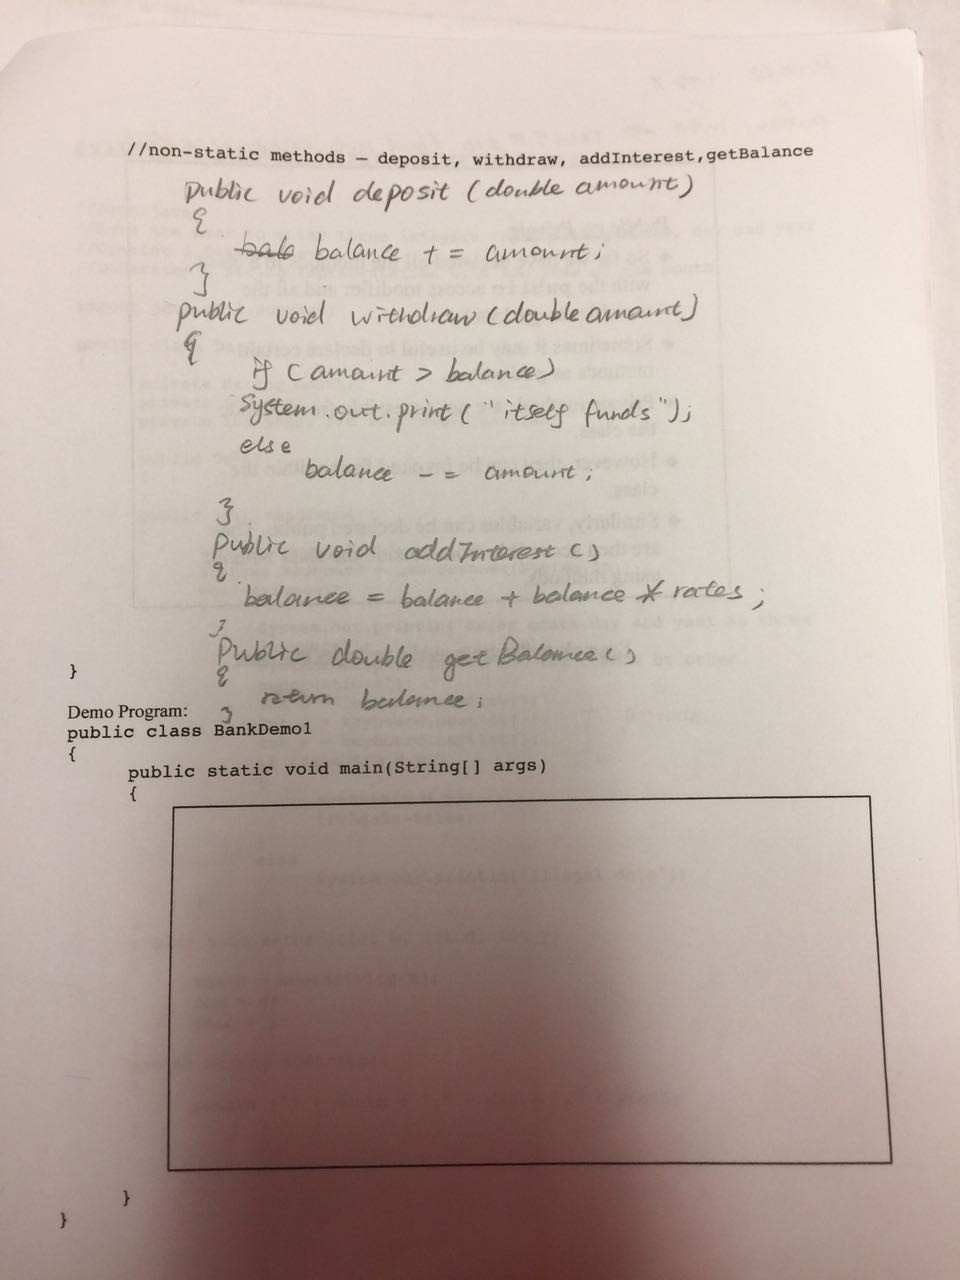 //non-static methods – deposit, withdraw, addInterest,getBalance
public void deposit (double amount)
{
balance += amount;
}
public void withdraw (double amount)
{
if (amount > balance)
System.out.print ("itself funds");
else
balance -= amount;
}
public void addInterest ()
{
balance = balance + balance * rates;
}
Public double getBalance ()
}
{
return balance;
Demo Program:
}
public class BankDemo1
{
public static void main(String[] args)
{
}
}